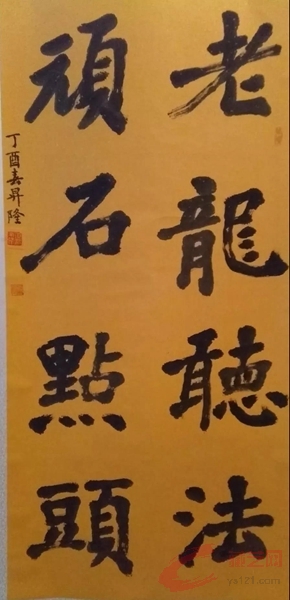 老龍聽法
頑石點頭
丁酉嘉昇隆
yx121.com